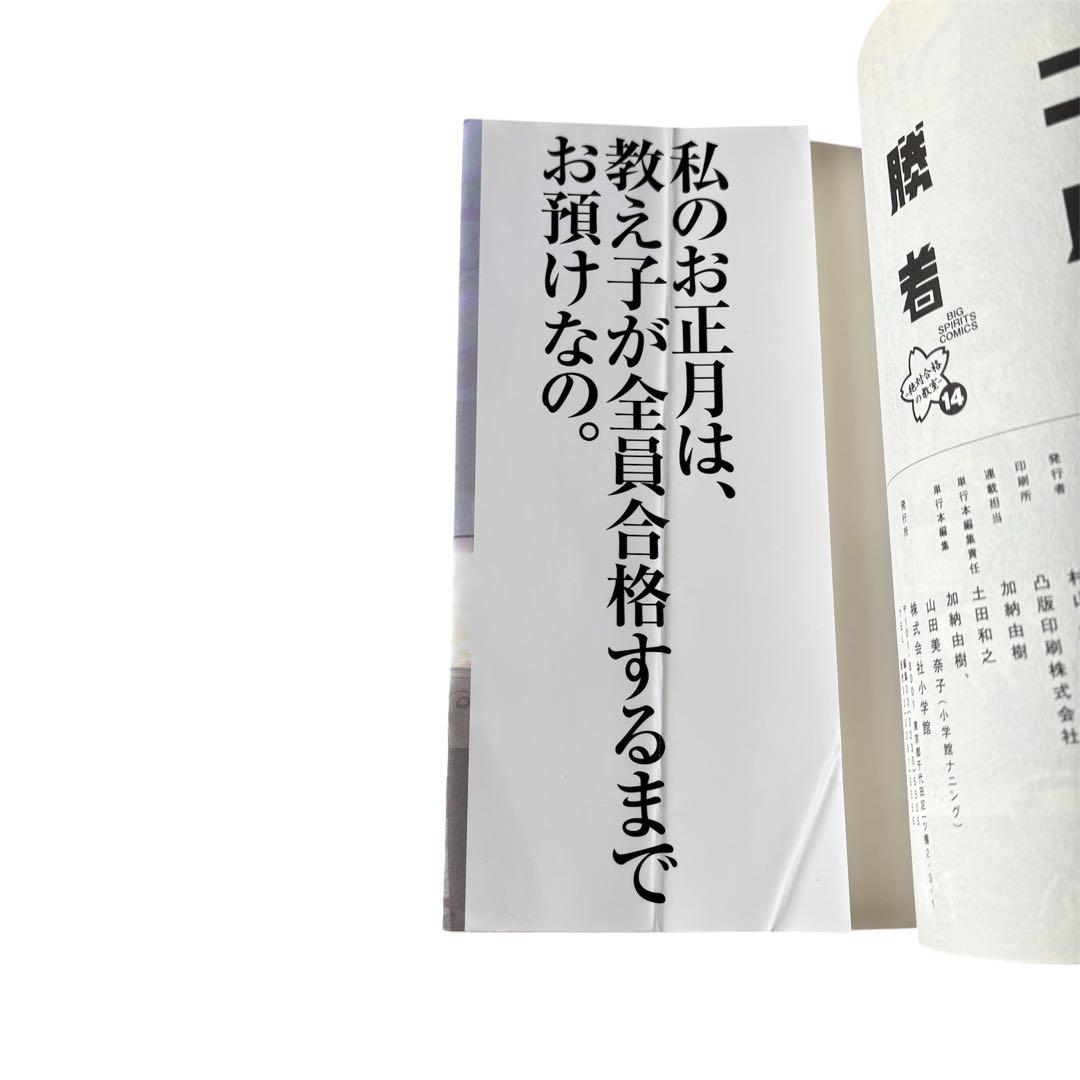 私のお正月は、
教え子が全員合格するまで
お預けなの。
勝者
BIG
SPIRITS
COMICS
-絶対合格
の教室-
14
発行者
印刷所 凸版印刷株式会社
連載担当 加納由樹
単行本編集責任 土田和之
単行本編集 加納由樹、
山田美奈子(小学館ナニング)
発行所 株式会社小学館
〒101-8001 東京都千代田区一ツ橋2-3-1